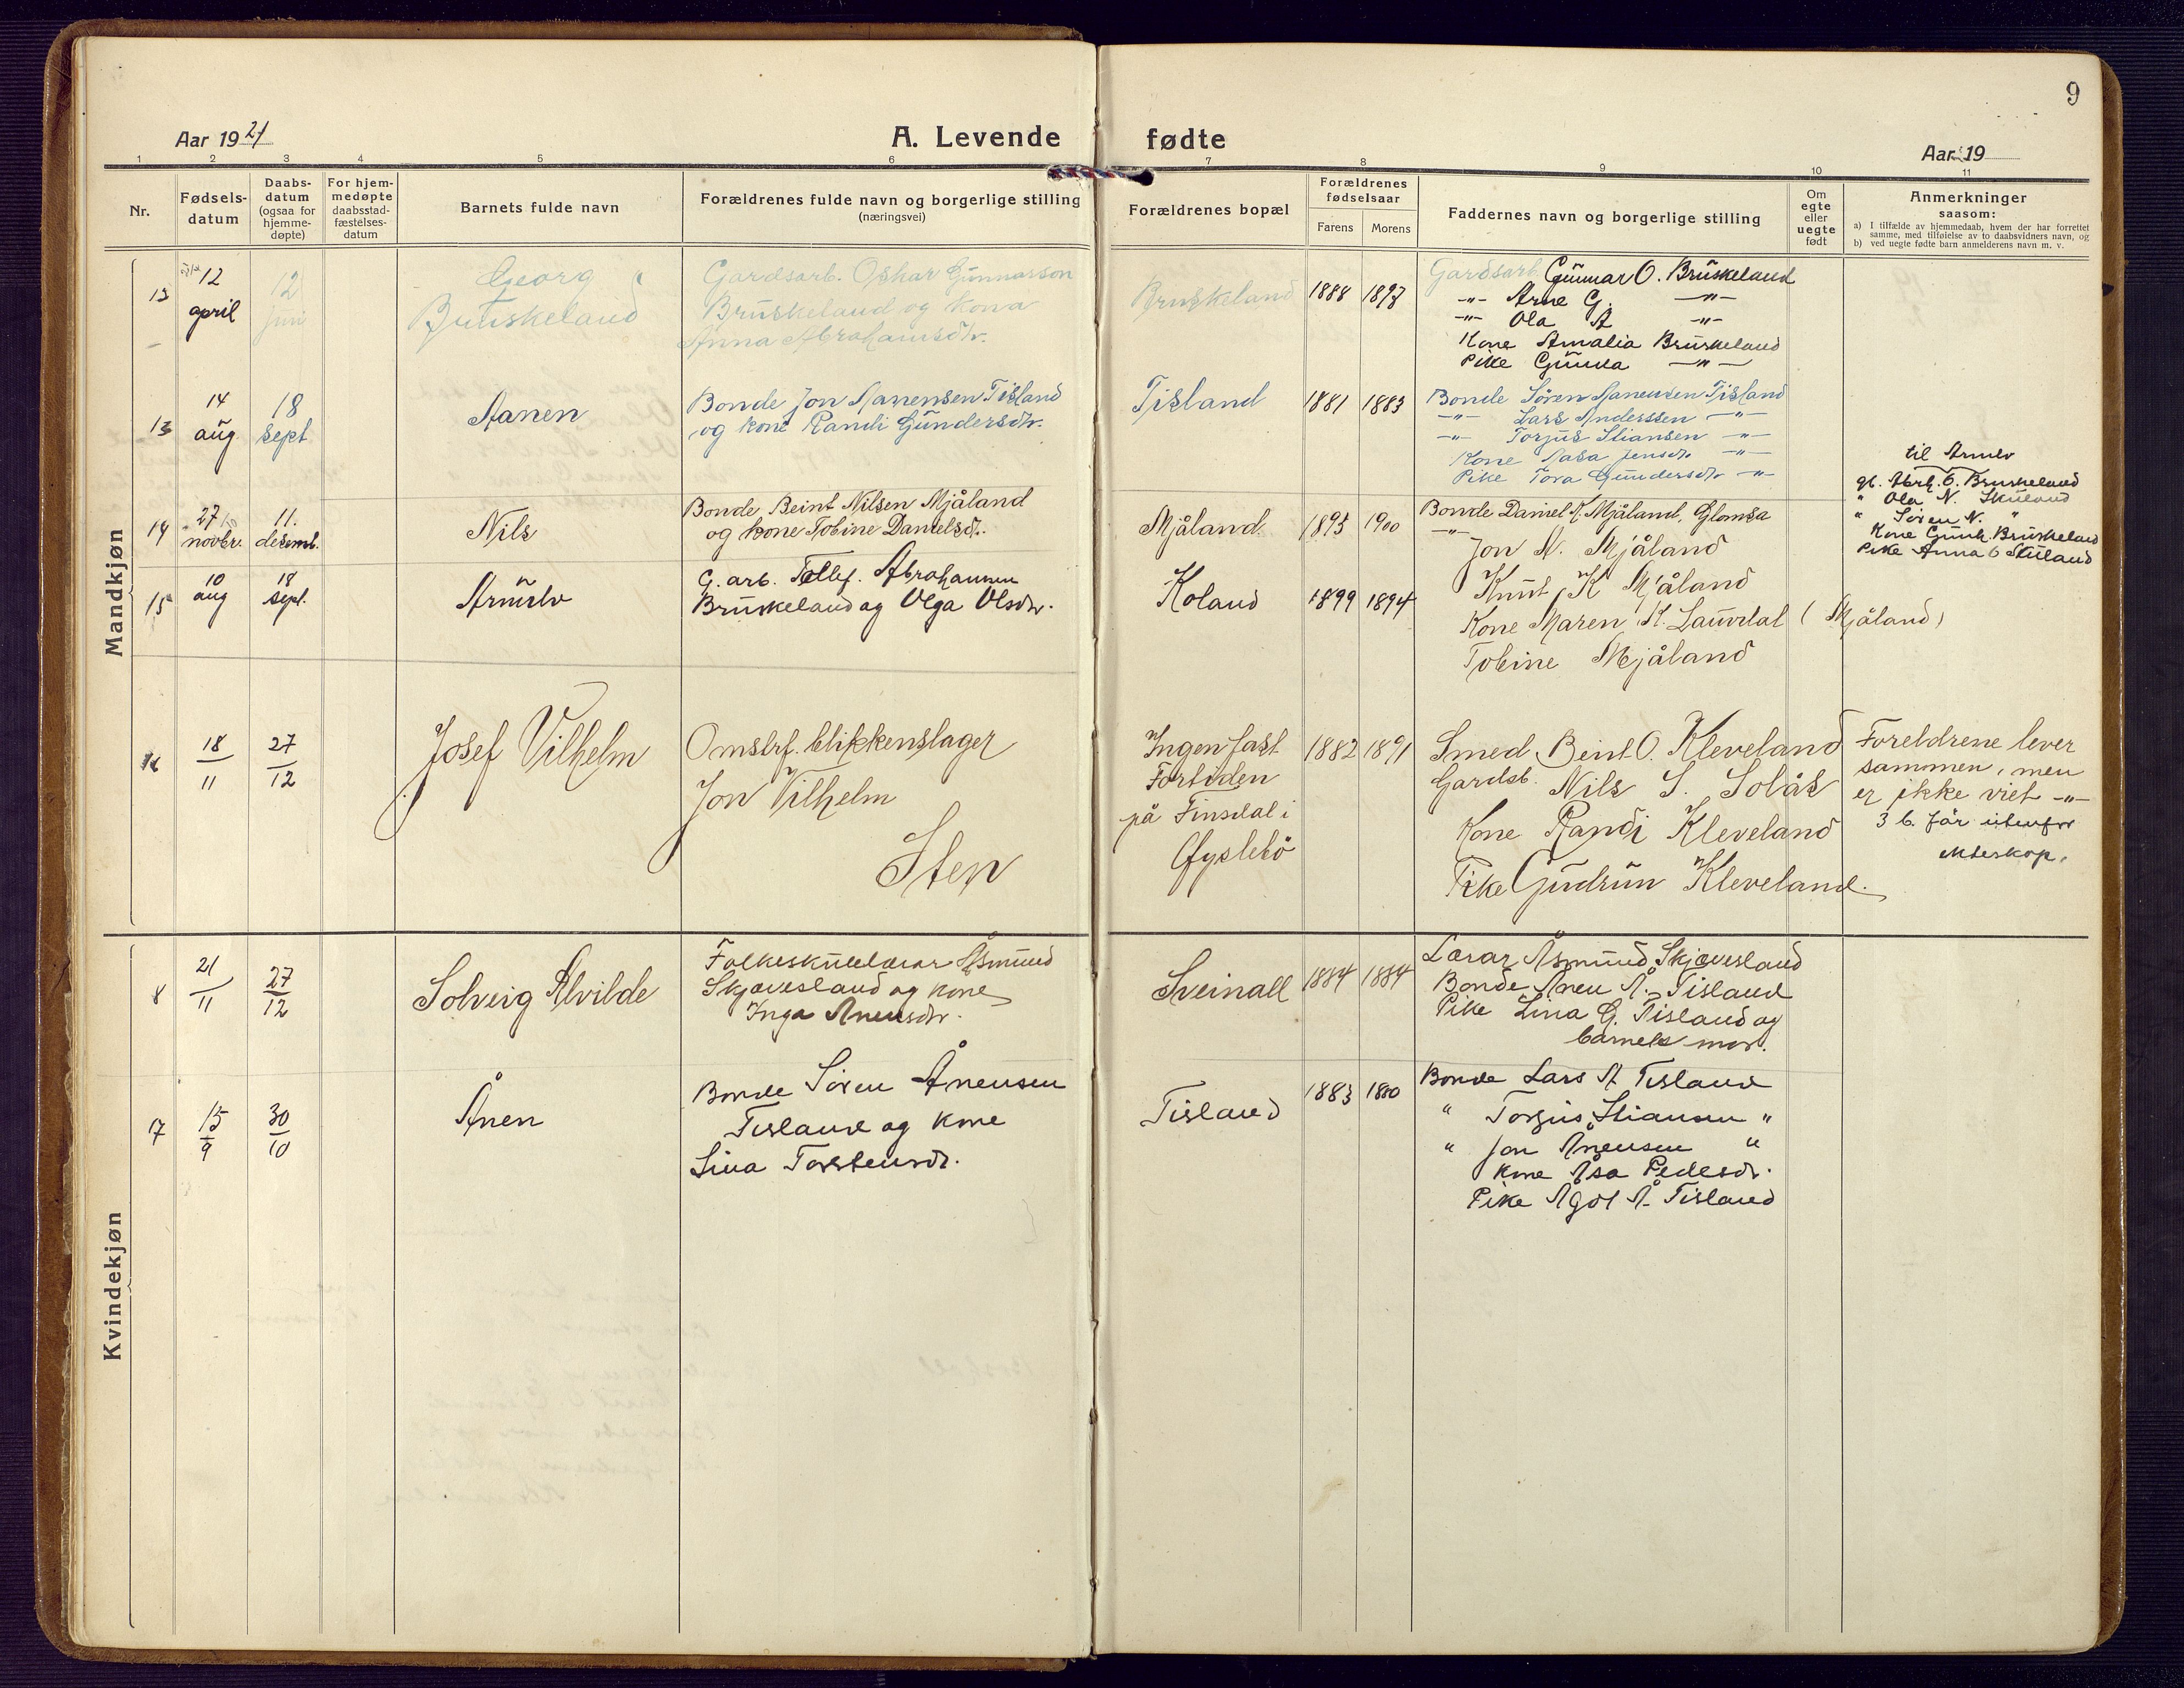 9
Aar 1921
A. Levende fødte
Aar 19
1 2 3 4 5 6 7 8 9 10 11
Nr.
Fødsels-
datum
Daabs-
datum
(ogsaa for
hjemme-
døpte)
For hjem-
medøpte
daabsstad-
fæstelses-
datum
Barnets fulde navn
Forældrenes fulde navn og borgerlige stilling
(næringsvei)
Forældrenes bopæl
Forældrenes
fødselsaar
Farens Morens
Faddernes navn og borgerlige stilling
Om
egte
eller
uegte
født
Anmerkninger
saasom:
a) I tilfælde av hjemmedaab, hvem der har forrettet
samme, med tilføielse av to daabsvidners navn, og
b) ved uegte fødte barn anmelderens navn m. v.
Mandkjøn
13
12
april
12
juni
Georg
Bruskeland
Gardsarb. Oskar Gunnarson
Bruskeland og kona
Anna Abrahamsdtr.
Bruskeland
1888 1893
Gardsarb. Gunnar O. Bruskeland
-"- Arne G. -"-
-"- Ola A -"-
Kone Amalia Bruskeland
Pike Gunda -"-
13
14
aug
18
sept
Aanen
Bonde Jon Aanensen Tisland
og kone Randi Gundersdtr.
Tisland
1881 1883
Bonde Sören Aanensen Tisland
-"- Lars Anderssen -"-
-"- Torjus Stiansen -"-
Kone Aasa Jensdtr -"-
Pike Tora Gundersdtr -"-
14
27
novbr.
11.
desemb.
Nils
Bonde Beint Nilsen Mjåland
og kone Tobine Danielsdtr.
Mjåland
1895 1900
Bonde Daniel K. Mjåland, Glomsa
-"- Jon N. Mjåland
Knut K Mjåland
Kone Maren K. Lauvdal (Mjåland)
Tobine Mjåland
15
10
aug
18
sept.
Arnulv
G. arb. Tellef. Abrahamsen
Bruskeland og Olga Olsdtr.
Koland
1899 1894
til Arnulv
gb. Abrh. O. Bruskeland
" Ola N. Skuland
" Sören N. "
Kone Gunh. Bruskeland
Pike Anna O Skuland
16
18
11
27
12
Josef Vilhelm
Omstrf. blikkenslager
Jon Vilhelm
Sten
Ingen fast
Fortiden
på Finsdal i
Øyslebö
1882 1891
Smed Beint O. Kleveland
Gardsb. Nils S. Solås
Kone Randi Kleveland
Pike Gudrun Kleveland.
Foreldrene lever
sammen, men
er ikke viet -"-
3 b. før utenfor
ekteskap.
Kvindekjøn
8
21
11
27
12
Solveig Alvilde
Folkeskulelærar Åsmund
Skjævesland og kone
Inga Ånensdtr.
Sveinall
1884 1884
Lærar Åsmund Skjævesland
Bonde Ånen Å. Tisland
Pike Lina G. Tisland og
barnets mor.
17
15
9
30
10
Ånen
Bonde Sören Ånensen
Tisland og kone
Lina Torstensdtr.
Tisland
1883 1880
Bonde Lars A Tisland
" Torjus Stiansen "
" Jon Ånensen "
Kone Åsa Pedersdtr.
Pike Ågot Å. Tisland